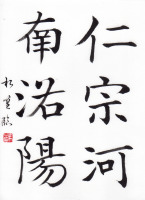 仁宗河
南洛陽